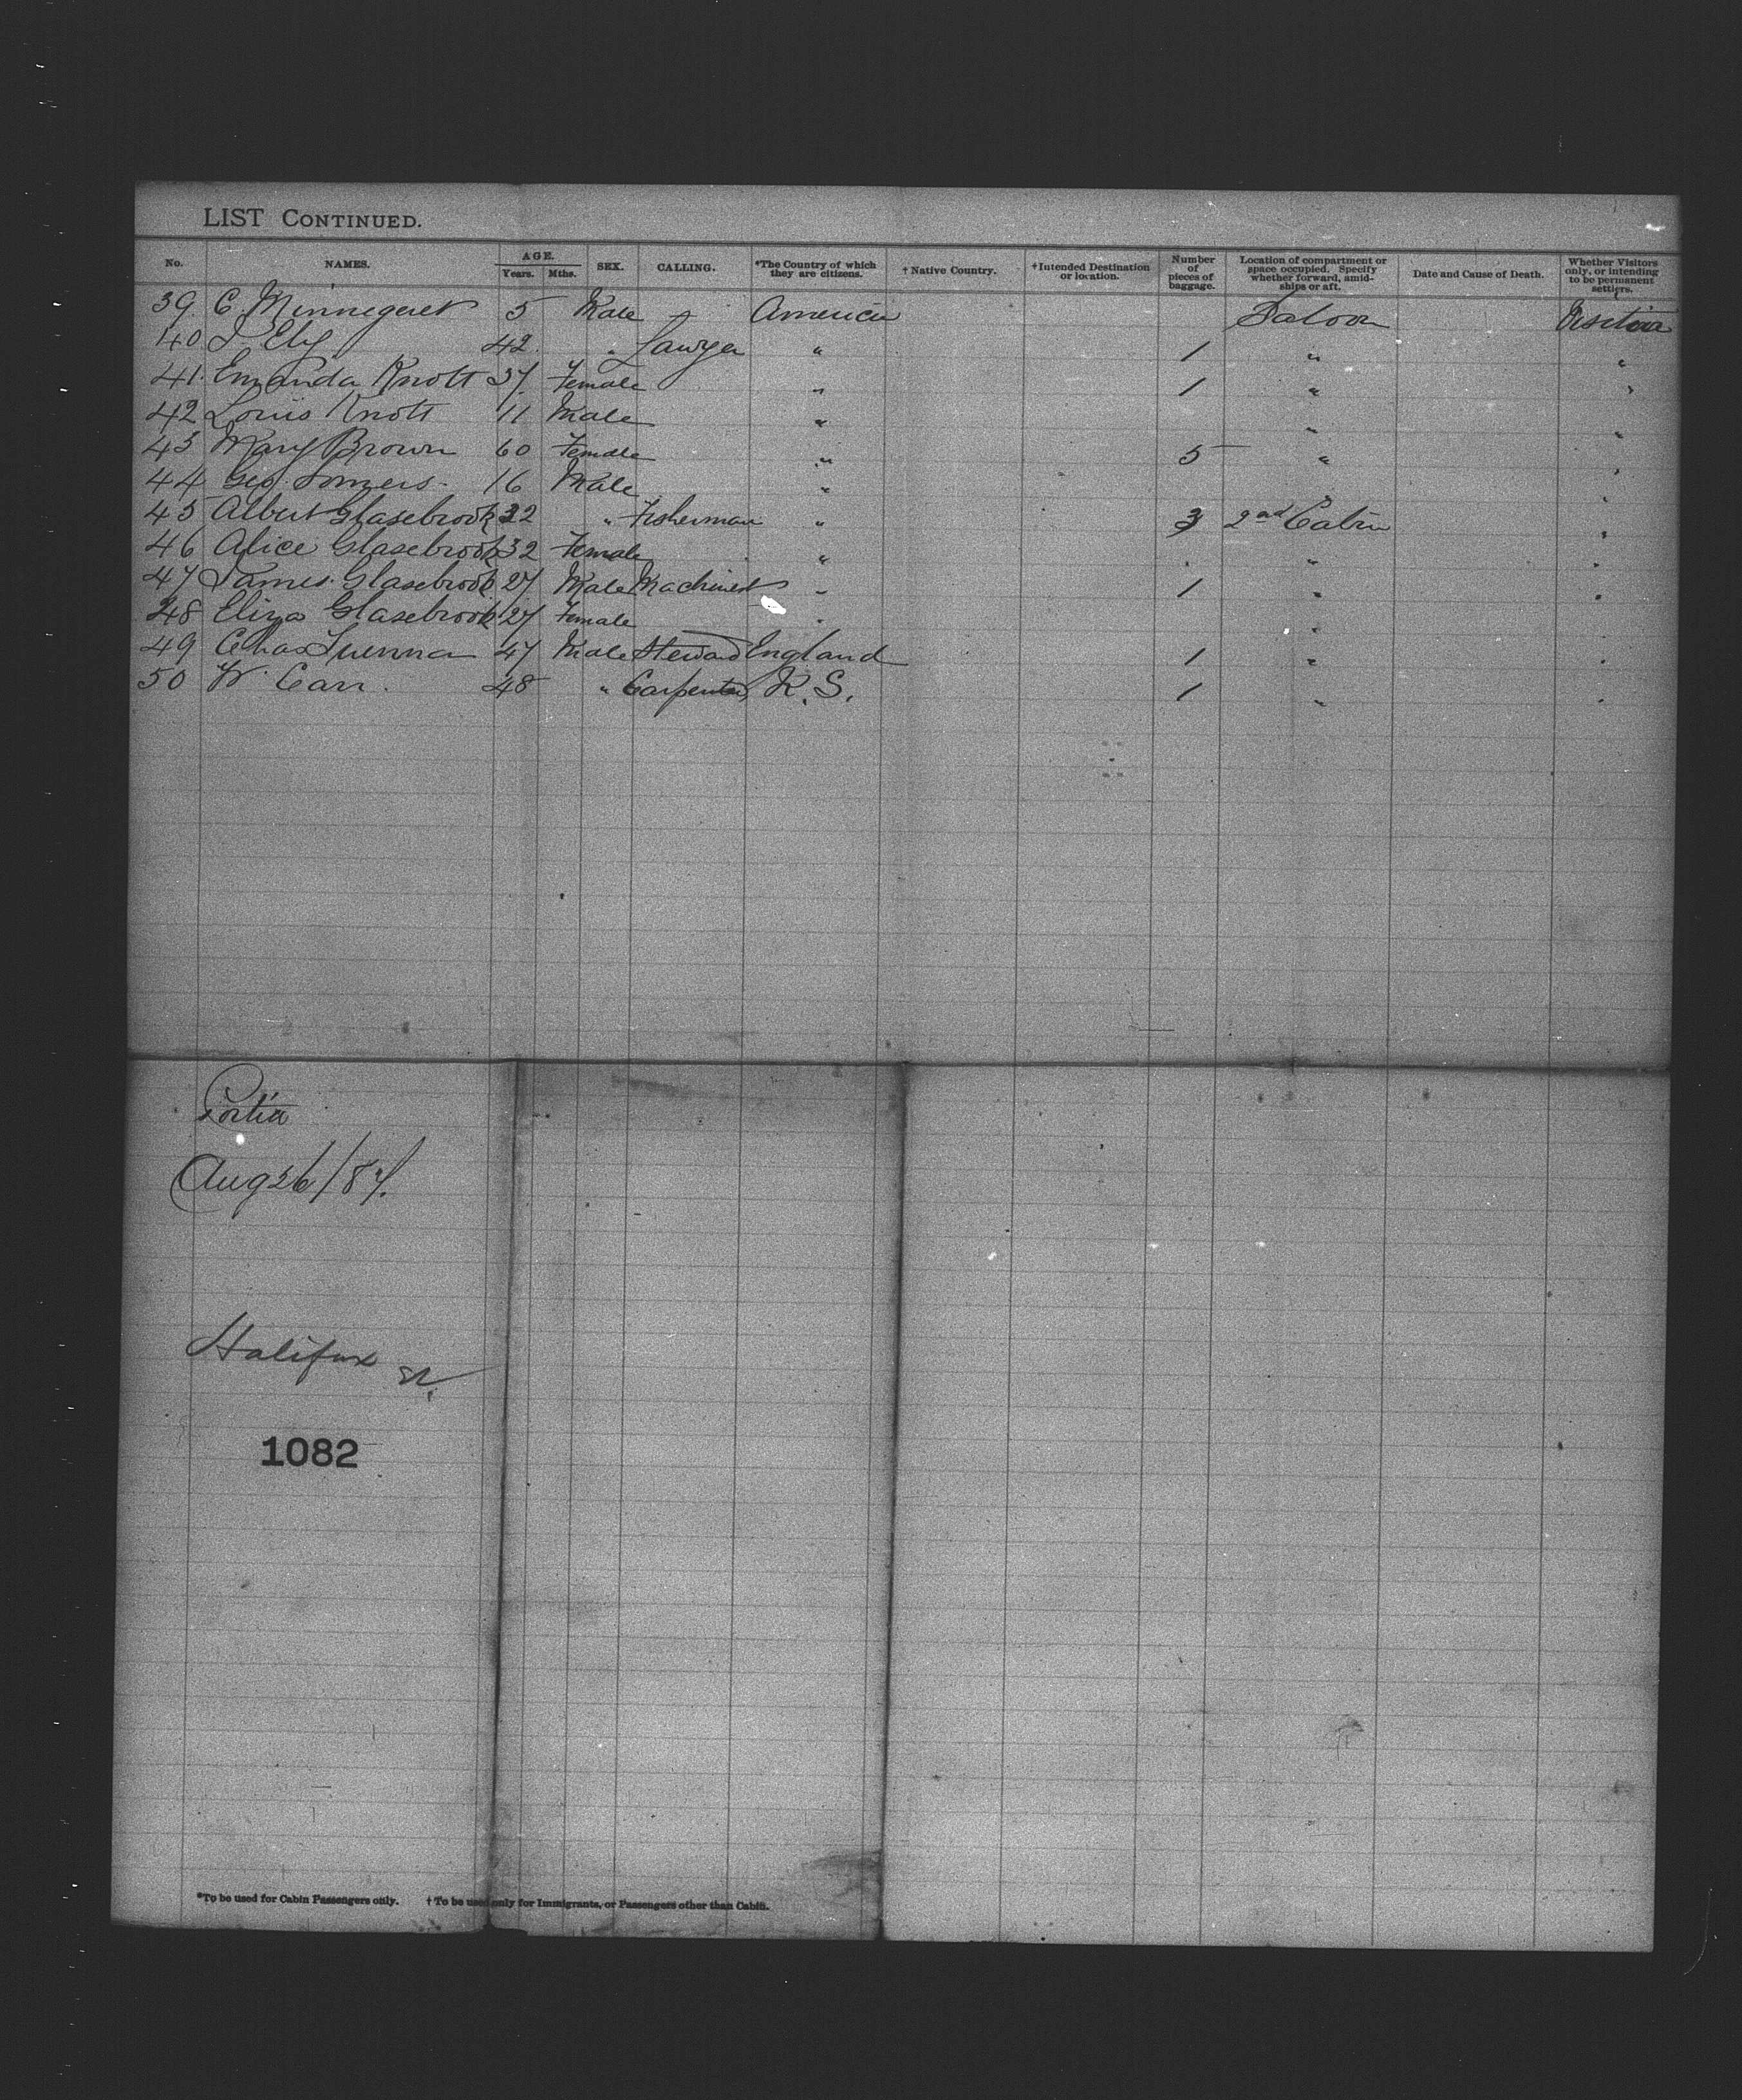 LIST CONTINUED.
No. NAMES. AGE. Years. Mths. SEX. CALLING. *The Country of which they are citizens. † Native Country. †Intended Destination or location. Number of pieces of baggage. Location of compartment or space occupied. Specify whether forward, amid-ships or aft. Date and Cause of Death. Whether Visitors only, or intending to be permanent settlers.
39 C Minnegeret 5 Male America Saloon Visitor
40 J. Ely 42 " Lawyer " 1 " "
41. Emanda Knott 37 Female " 1 " "
42 Louis Knott 11 Male " " "
43 Mary Brown 60 Female " 5 " "
44 Geo. Somers. 16 Male " "
45 Albert Glasebrook 32 " Fisherman " 3 2nd Cabin "
46 Alice Glasebrook 32 Female " " "
47 James Glasebrook 27 Male Machinest " 1 " "
48 Eliza Glasebrook 27 Female " " "
49 Chas 47 Male Steward England 1 " "
50 W. Carr. 48 " Carpenter, 1 " "
Portia
Aug 26/87.
Halifax
1082
*To be used for Cabin Passengers only. † To be used only for Immigrants, or Passengers other than Cabin.